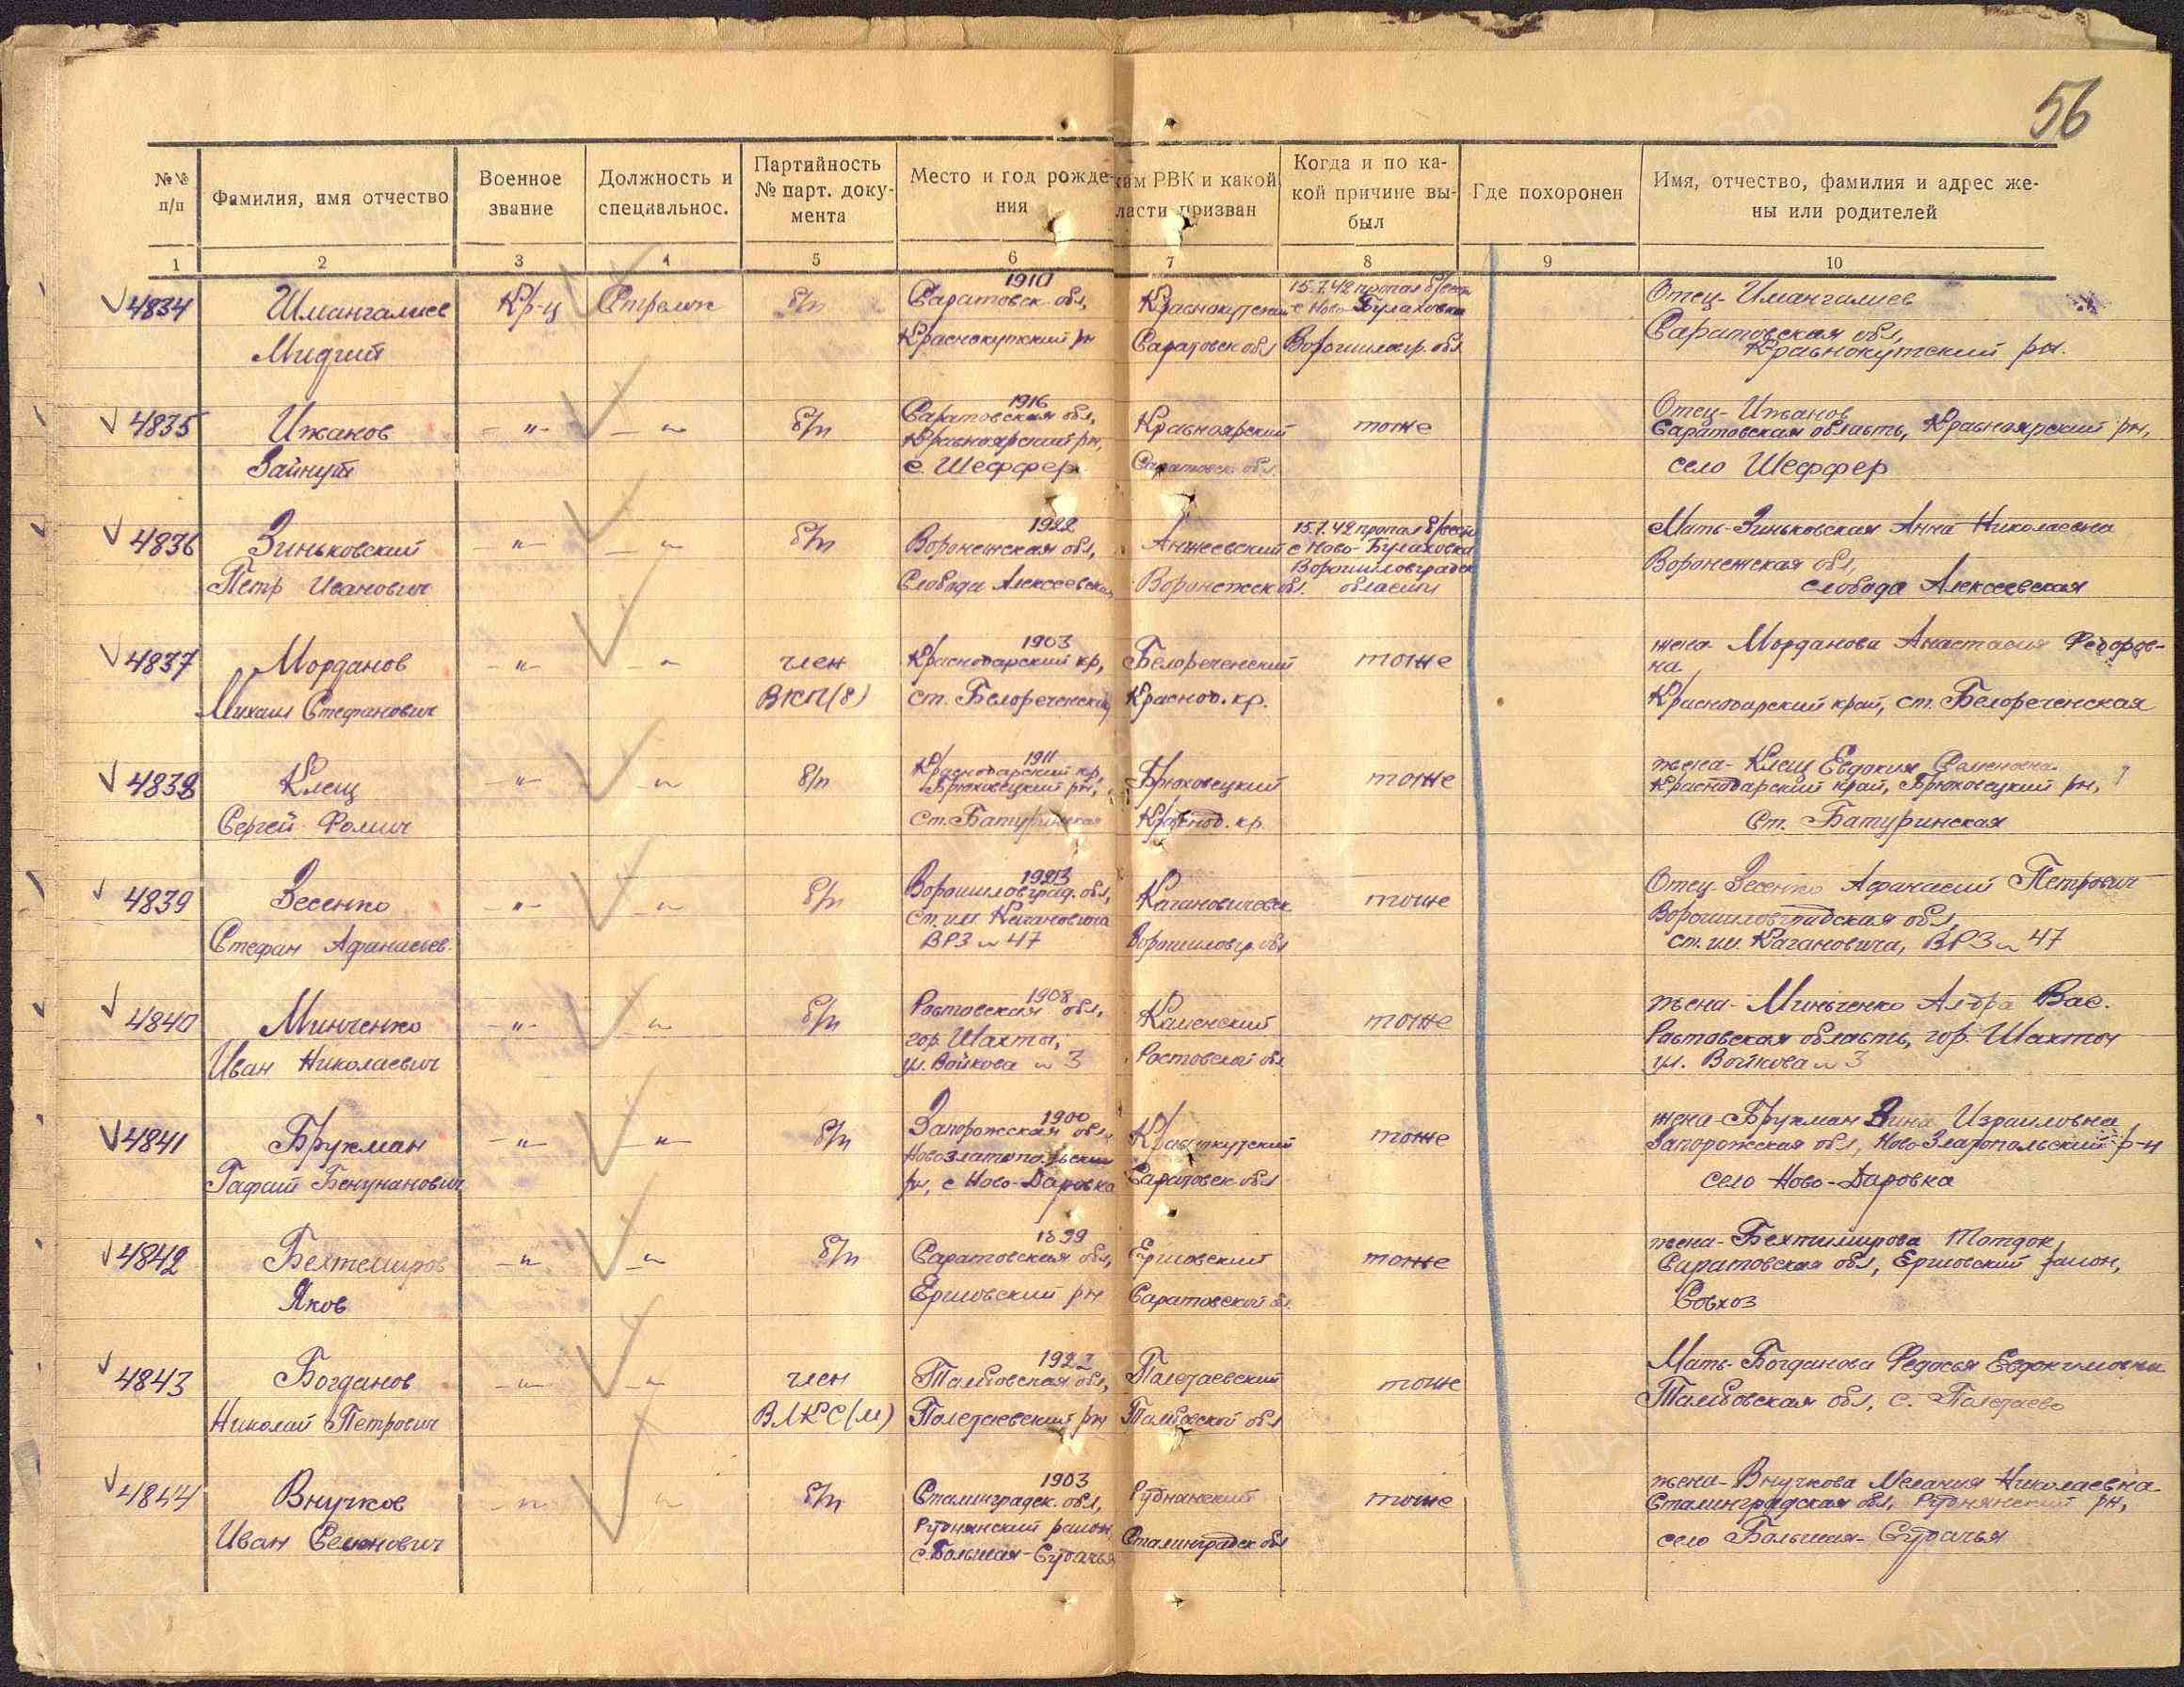 56
№№ п/п
Фамилия, имя отчество
Военное звание
Должность и специальнос.
Партийность № парт. доку-мента
Место и год рожде-ния
ким РВК и какой ласти призван
Когда и по ка-кой причине вы-был
Где похоронен
Имя, отчество, фамилия и адрес же-ны или родителей
1 2 3 4 5 6 7 8 9 10
4834 Имангалиев Кр-ц Стрелок б/п 1910 Саратовск. обл, Краснокутский 15.7.42 пропал б/вести Отец-Имангалиев
с Ново-Булаховка Саратовская обл,
Мидгит Краснокутский рн Саратовск обл Ворошилогр. обл Краснокутский рн.
4835 Ижанов -"- -"- б/п 1916 Саратовская обл, Красноярский тоже Отец-Ижанов
Красноярский рн, Саратовская область, Красноярский рн,
Зайнут с. Шеффер Саратовск. обл. село Шеффер
4836 Зиньковский -"- -"- б/п 1922 Воронежская обл, 15.7.42 пропал б/вести Мать-Зиньковская Анна Николаевна
с Ново-Булаховка Воронежская обл,
Петр Иванович Слобода Алексеевская Воронежск обл. Ворошиловградск области слобода Алексеевская
4837 Морданов -"- -"- член 1903 Краснодарский кр, Белореченский тоже жена Морданова Анастасия Федоров-
на
Михаил Стефанович ВКП(б) ст. Белореченской Краснод. кр. Краснодарский край, ст. Белореченская
4838 Клещ -"- -"- б/п 1911 Краснодарский кр, Брюховецкий тоже жена-Клещ Евдокия Семеновна
Брюховецкий рн, Краснодарский край, Брюховецкий рн,
Сергей Фомич Ст. Батуринская Краснод. кр. Ст. Батуринская
4839 Зесенко -"- -"- б/п 1923 Ворошиловград. обл, Кагановичевск тоже Отец-Зесенко Афанасий Петрович
ст. им. Кагановича Ворошиловградская обл,
Стефан Афанасьев. ВРЗ № 47 Ворошиловгр. обл ст. им. Кагановича, ВРЗ № 47
4840 Минченко -"- -"- б/п 1908 Ростовская обл, Каменский тоже жена-Миньченко Алдра Вас.
гор. Шахты, Ростовская область, гор. Шахты
Иван Николаевич ул. Войкова № 3 Ростовской обл ул. Войкова № 3
4841 Брукман -"- -"- б/п 1900 Запорожская обл, Краснокутский тоже жена-Брукман Зина Израиловна
Новозлатопольский Запорожская обл, Ново-Златопольский р-н
рн, с Ново-Даровка Саратовск обл село Ново-Даровка
4842 Бехтемиров -"- -"- б/п 1899 Саратовская обл, Ершовский тоже жена-Бехтимирова
Саратовская обл, Ершовский район,
Яков Ершовский рн Саратовской об. Совхоз
4843 Богданов -"- -"- член 1922 Тамбовская обл, Полетаевский тоже Мать-Богданова Федосья Евдокимовна
Николай Петрович ВЛКС(м) Полетаевский рн Тамбовской обл Тамбовская обл, с. Полетаево
4844 Внучков -"- -"- б/п 1903 Сталинградск. обл, Руднянский тоже жена-Внучкова Мелания Николаевна
Руднянский район Сталинградская обл, Руднянский рн,
Иван Семенович с. Большая-Судачья Сталинградск обл село Большая-Судачья